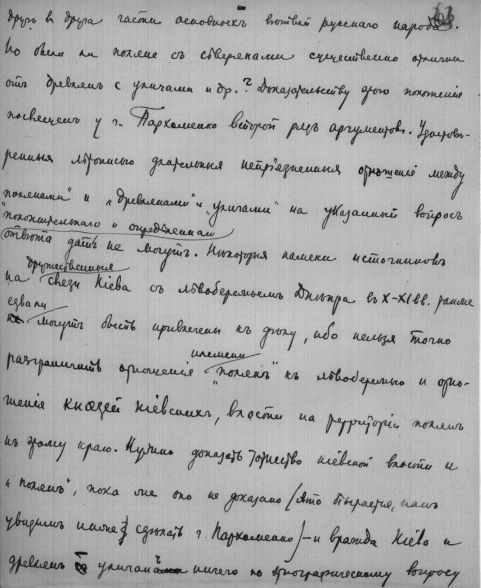 другъ въ друга части основныхъ вѣтвей русскаго народа.
Но были ли поляне съ сѣверянами существенно отличны
отъ древлянъ съ уличами и др.? Доказательству этого положенія
посвященъ у г. Пархоменко второй рядъ аргументовъ. Удостовѣ-
ренныя лѣтописью длительныя непріязненныя отношенія между
"полянами" и "древлянами" и "уличами" на указанный вопросъ
"положительнаго и опредѣленнаго
отвѣта дать не могутъ. Нѣкоторые намеки источниковъ
дружественныя
на связи Кіева съ лѣвобережьемъ Днѣпра въ X-XI вв. ранѣе
едва ли
могутъ быть привлечены къ дѣлу, ибо нельзя точно
племени
разграничить отношенія "полянъ" къ лѣвобережью и отно-
шенія князей кіевскихъ, власти на территоріи полянъ
къ этому краю. Нужно доказать тожество кіевской власти и
"полянъ", пока же оно не доказано (это пытается, какъ
увидимъ ниже, сдѣлать г. Пархоменко) – и вражда Кіева и
древлянъ уличамъ ничего по этнографическому вопросу